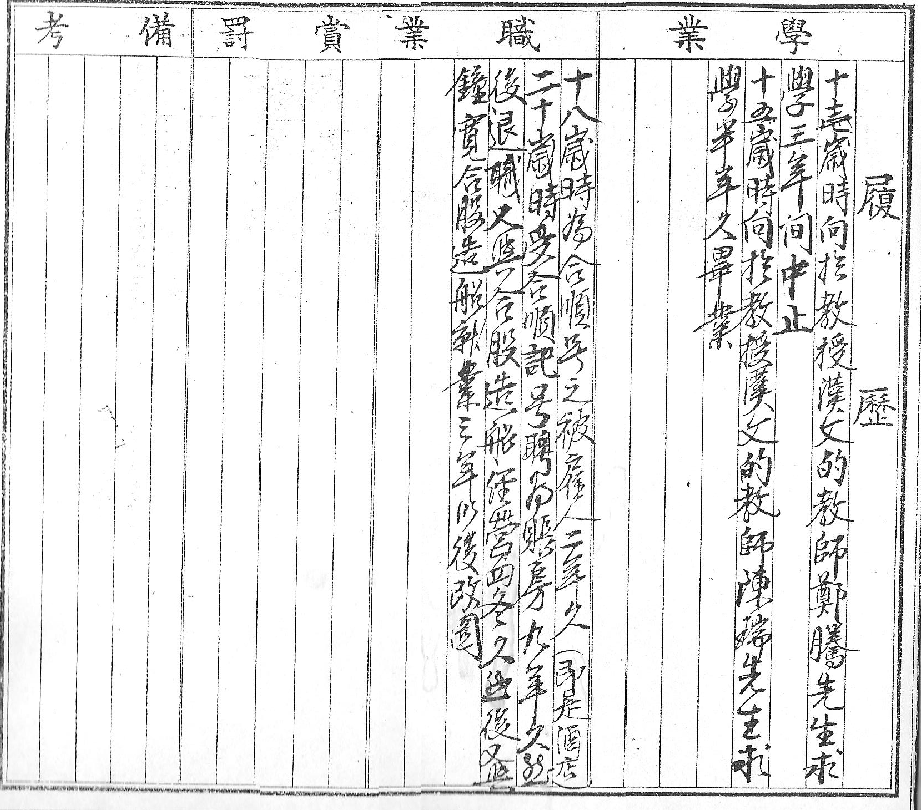 履歷
學業
十壱歲時向於教授漢文的教師鄭騰先生求
學三年间中止
十五歲時向於教授漢文的教師陳瑞先生求
學半年久畢業
職業
十八歲時為合順号之被雇人二年久(即是酒店)
二十歲時受合順記号聘為賬房九年久然
後退職又與人合股造船经营四年久過後又與
鐘寬合股造船新業三年以後改圖
賞罰
備考